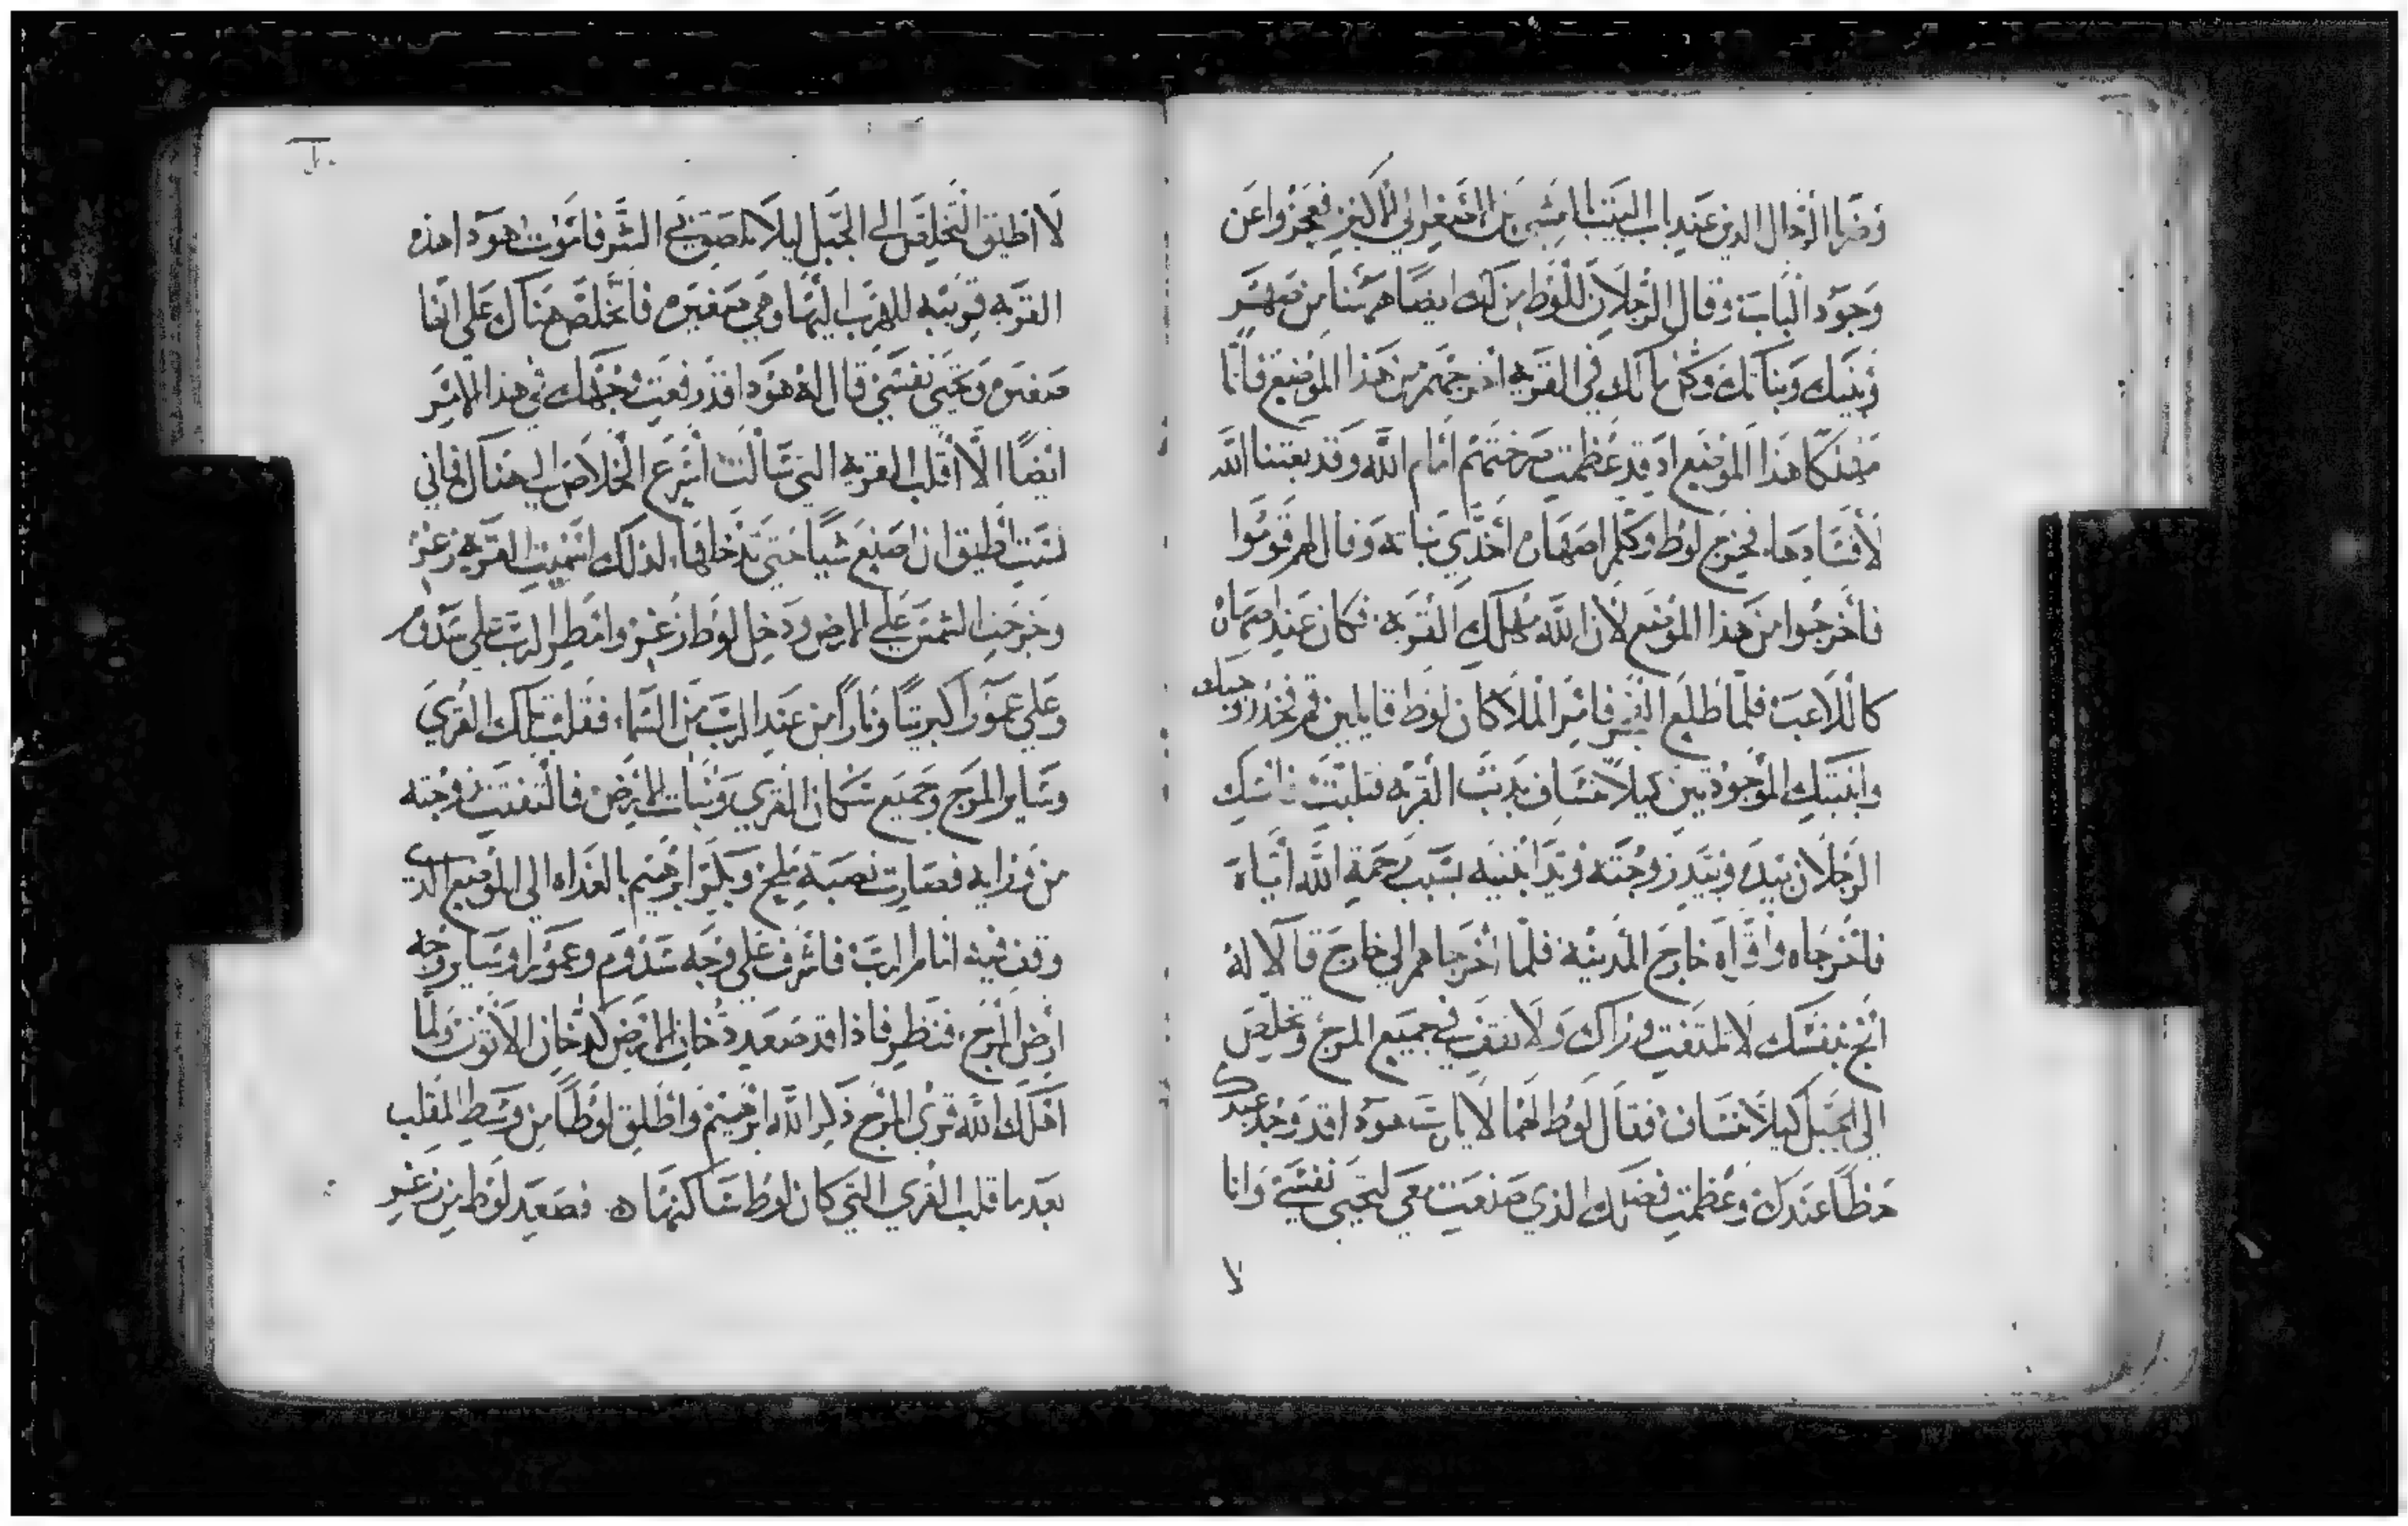 وضربا الرجال الدين عند باب البيت بالعشي من الصغير الي الاكبر فعجزوا عن
وجود الباب وقال الرجلان للوط من لك ايضا هاهنا من صهر
وبنيك وبناتك وكل ما لك في القرية اخرجهم من هذا الموضع فانا
مهلكا هذا الموضع اد قد عظمت صرختهم امام الله وقد بعتنا الله
لافسادها فخرج لوط وكلم اصهاره اخدي بناته وقال لهم قوموا
فاخرجوا من هذا الموضع لان الله مهلك القرية فكان عند اصهاره
كاللاعب فلما طلع الفجر فامر الملاكان لوط قايلين قم فخد زوجتك
وابنتيك الموجودتين كيلا تنساف بدنب القرية فتلبت فامسك
الرجلان بيده وبيد زوجته ويد ابنتيه بسبب رحمة الله اياه
فاخرجاه واقراه خارج المدينة فلما اخرجاهم الي خارج قالا له
انج بنفسك لا تلتفت وراك ولا تقف في جميع المرج وتخلص
الي الجبل كيلا تنساف فقال لوط لهما لا يا رب هودا قد وجد عبدك
حظا عندك وعظمت فضلك الذي صنعت معي لتحيي نفسي وانا
لا
لا اطيق التخلص الي الجبل ليلا يلصق بي الشر فاموت هودا هذه
القرية قريبه للهرب اليها وهي صغيره فاتخلص هناك علي انها
صغيره وتحيي نفسي قال له هودا قد رفعت وجهك في هذا الامر
ايضا الا اقلب القرية التي سالت اسرع الخلاص الي هناك فاني
لست اطيق ان اصنع شيا حتي تدخلها لذلك اسميت القرية زغر
وخرجت الشمس علي الارض ودخل لوط زغر وامطر الرب علي سدوم
وعلي عمورا كبريتا ونارا من عند الرب من السماء فقلب تلك القري
وساير المرج وجميع سكان القري ونبات الارض فالتفتت زوجته
من ورايه فصارت نصبة ملح وبكر ابرهيم بالغداه الي الموضع الدي
وقف فيه امام الرب فاشرف علي وجه سدوم وعمورا وساير وجه
ارض المرج فنظر فاذا قد صعد دخان الارض كدخان الاتون ولما
اهلك الله قري المرج ذكر الله ابرهيم واطلق لوطا من وسط المقلب
بعد ما قلب القري التي كان لوط ساكنها فصعد لوط من زغر